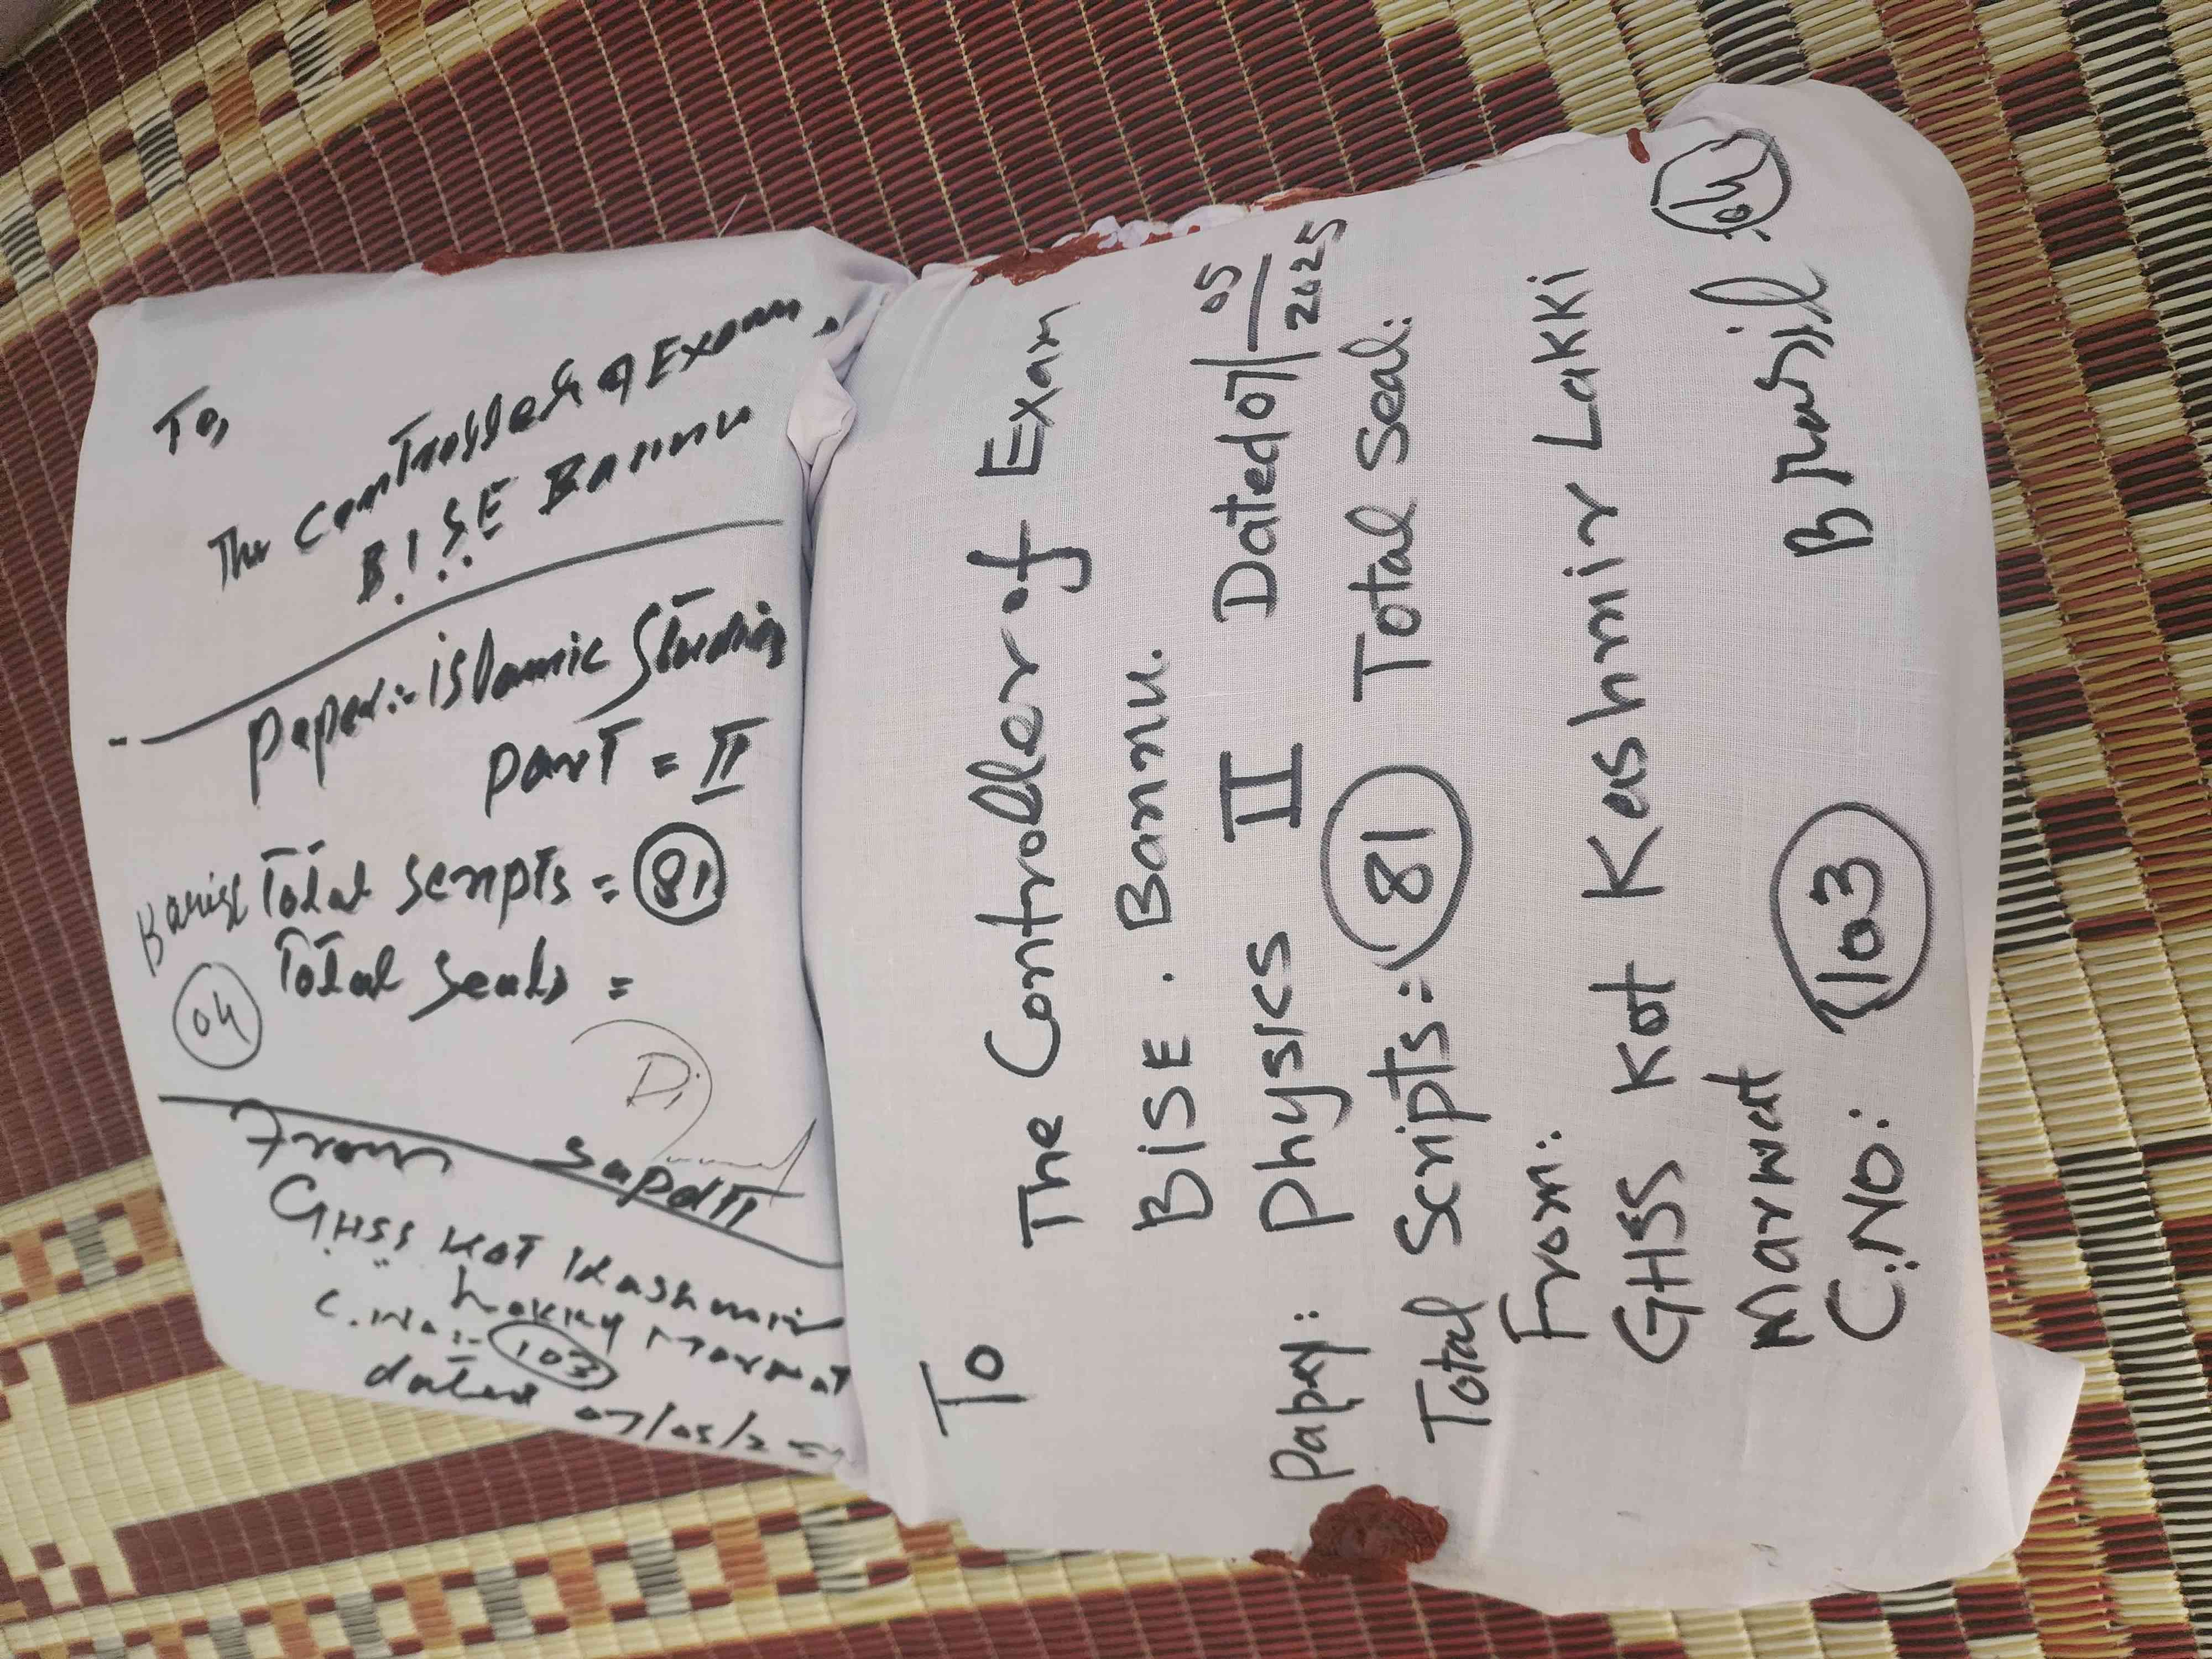 To,
The Controller of Exam,
B.I.S.E Bannu
Paper:- islamic Studies
parT = II
Total scripts = 81
Total seals =
04
From
Supdtt
G.HSS KOT Kashmir
Lakky Marwat
C.No:- 103
dated 07/05/2
To
The Controller of Exam
BiSE. Bannu.
Paper: Physics II Dated 07/05/2025
Total Scripts: 81 Total Seal:
From:
GHSS Kot Kashmir Lakki
Marwat
C.No: 103
04